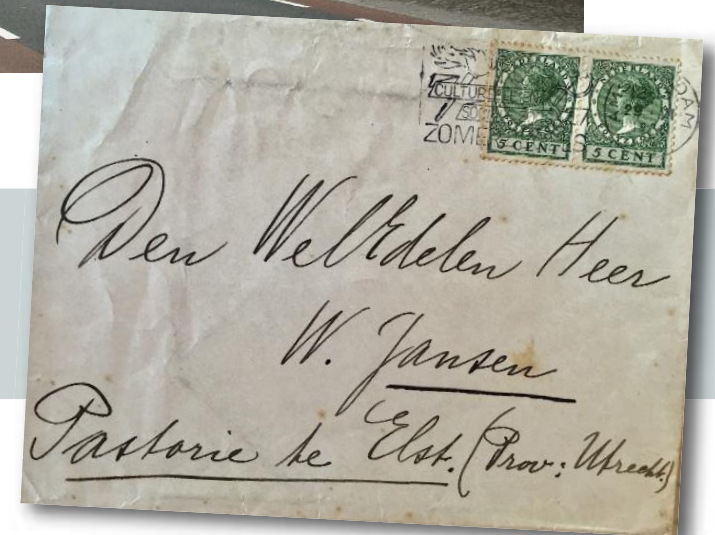 CULTURE
ZOME
5 CENT 5 CENT
DAM
Den WelEdelen Heer
W. Jansen
Pastorie te Elst. (Prov: Utrecht.)